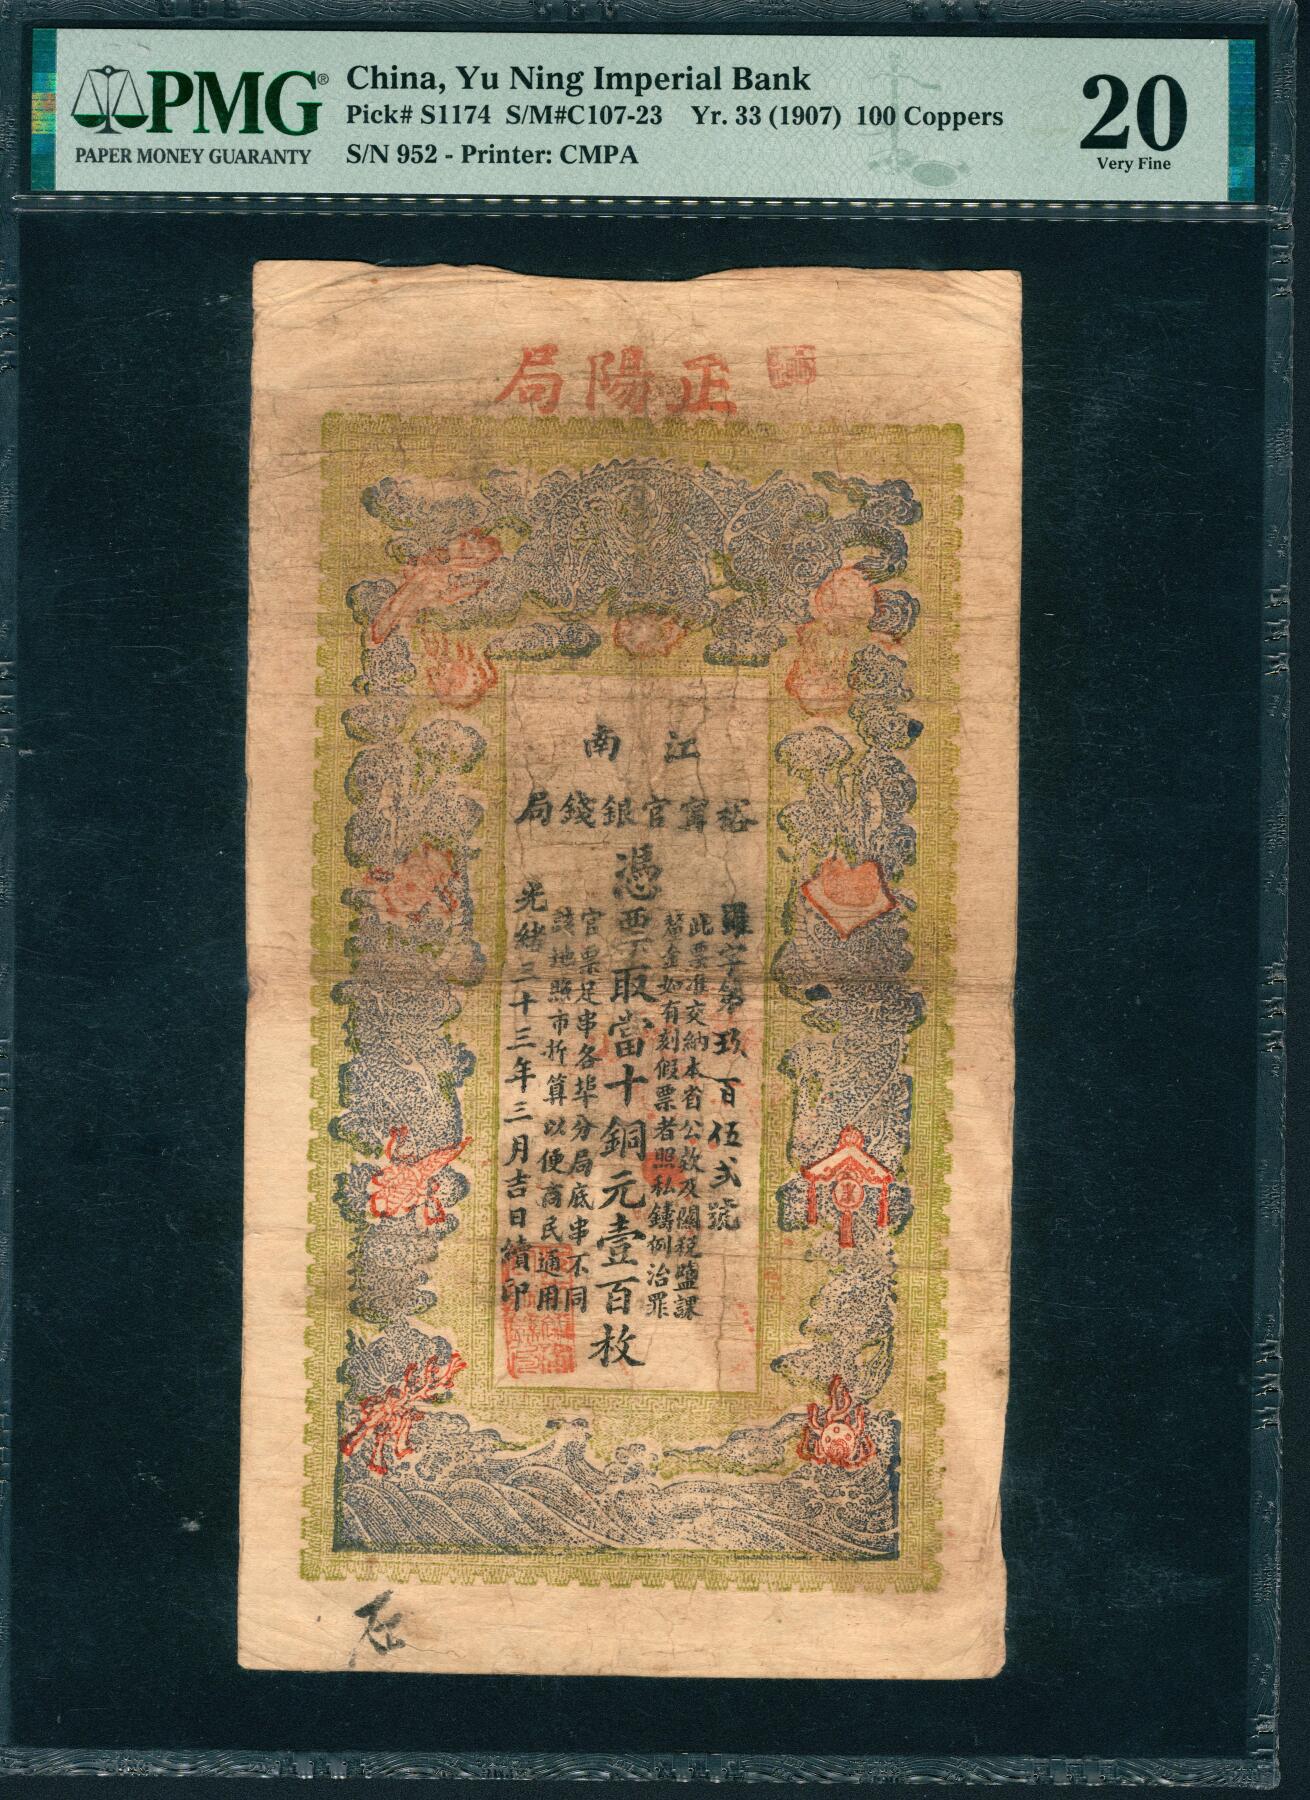 PMG®
PAPER MONEY GUARANTY
China, Yu Ning Imperial Bank
Pick# S1174 S/M#C107-23 Yr. 33 (1907) 100 Coppers
S/N 952 - Printer: CMPA
20
Very Fine
正陽局
江南
裕寧官銀錢局
羅字第玖百伍弍號
此票准交納本省公欵及關税鹽課
釐金如有刻假票者照私鑄例治罪
憑票取當十銅元壹百枚
官票足串各埠分局底串不同
該地照市折算以便商民通用
光緒三十三年三月吉日續印